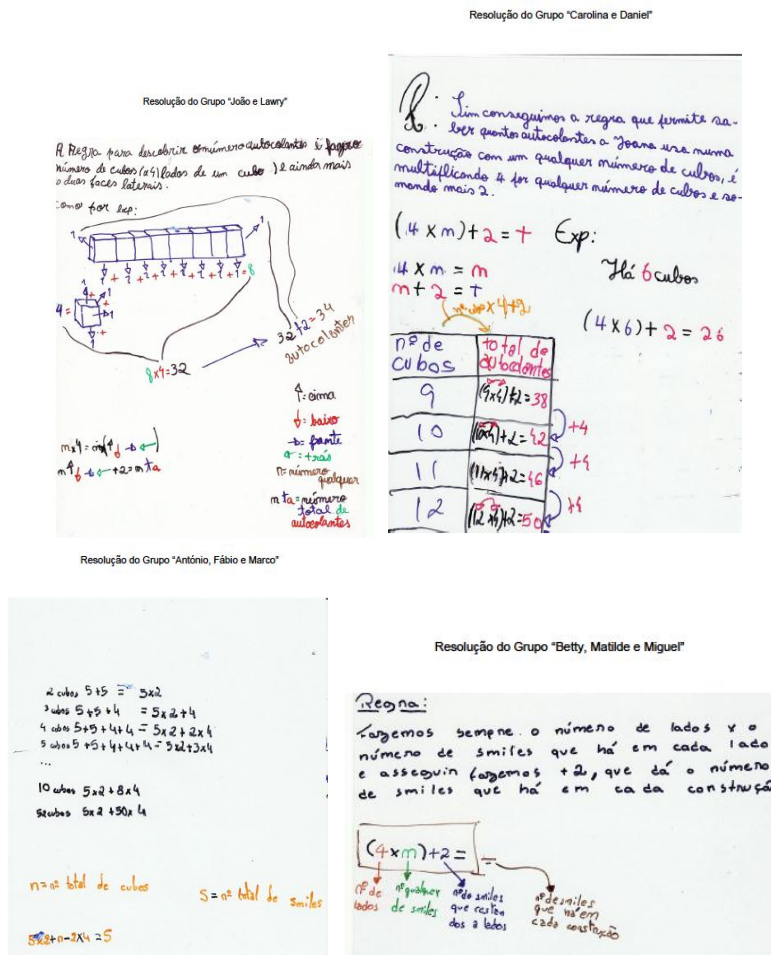 Resolução do Grupo “Carolina e Daniel”
Resolução do Grupo “João e Lawry”
A Regra para descobrir o número autocolantes é fazer o
número de cubos (x4) lados de um cubo ) e ainda mais
o duas faces laterais.
como por exp:
1 1
1 + 1 + 1 + 1 + 1 + 1 + 1 + 1 = 8
4 =
8x4=32
32+2=34
autocolantes
: cima
: baixo
: frente
: trás
n= número
qualquer
n ta = número
total de
autocolantes
+2=n ta
R: Sim conseguimos a regra que permite sa-
ber quantos autocolantes a Joana usa numa
construção com um qualquer número de cubos, é
multiplicando 4 por qualquer número de cubos e so-
mando mais 2.
(4 x n) + 2 = t Exp:
4 x n = m
m + 2 = t
Há 6 cubos
(4 x 6) + 2 = 26
x 4)+2
nº de cubos
total de autocolantes
9 (9x4)+2=38
+4
10 (10x4)+2=42
+4
11 (11x4)+2=46
+4
12 (12x4)+2=50
Resolução do Grupo “António, Fábio e Marco”
2 cubos 5+5 = 5x2
3 cubos 5+5+4 = 5x2+4
4 cubos 5+5+4+4 = 5x2+2x4
5 cubos 5+5+4+4+4 = 5x2+3x4
...
10 cubos 5x2+8x4
52 cubos 5x2+50x4
n= nº total de cubos
S= nº total de smiles
5x2+n-2x4=S
Resolução do Grupo “Betty, Matilde e Miguel”
Regra:
Fazemos sempre o número de lados x o
número de smiles que há em cada lado
e asseguir fazemos +2, que dá o número
de smiles que há em cada construçã
(4xn)+2= =
nº de lados
nº qualquer de smiles
nº de smiles que restan dos a lados
nº de smiles que há em cada construção